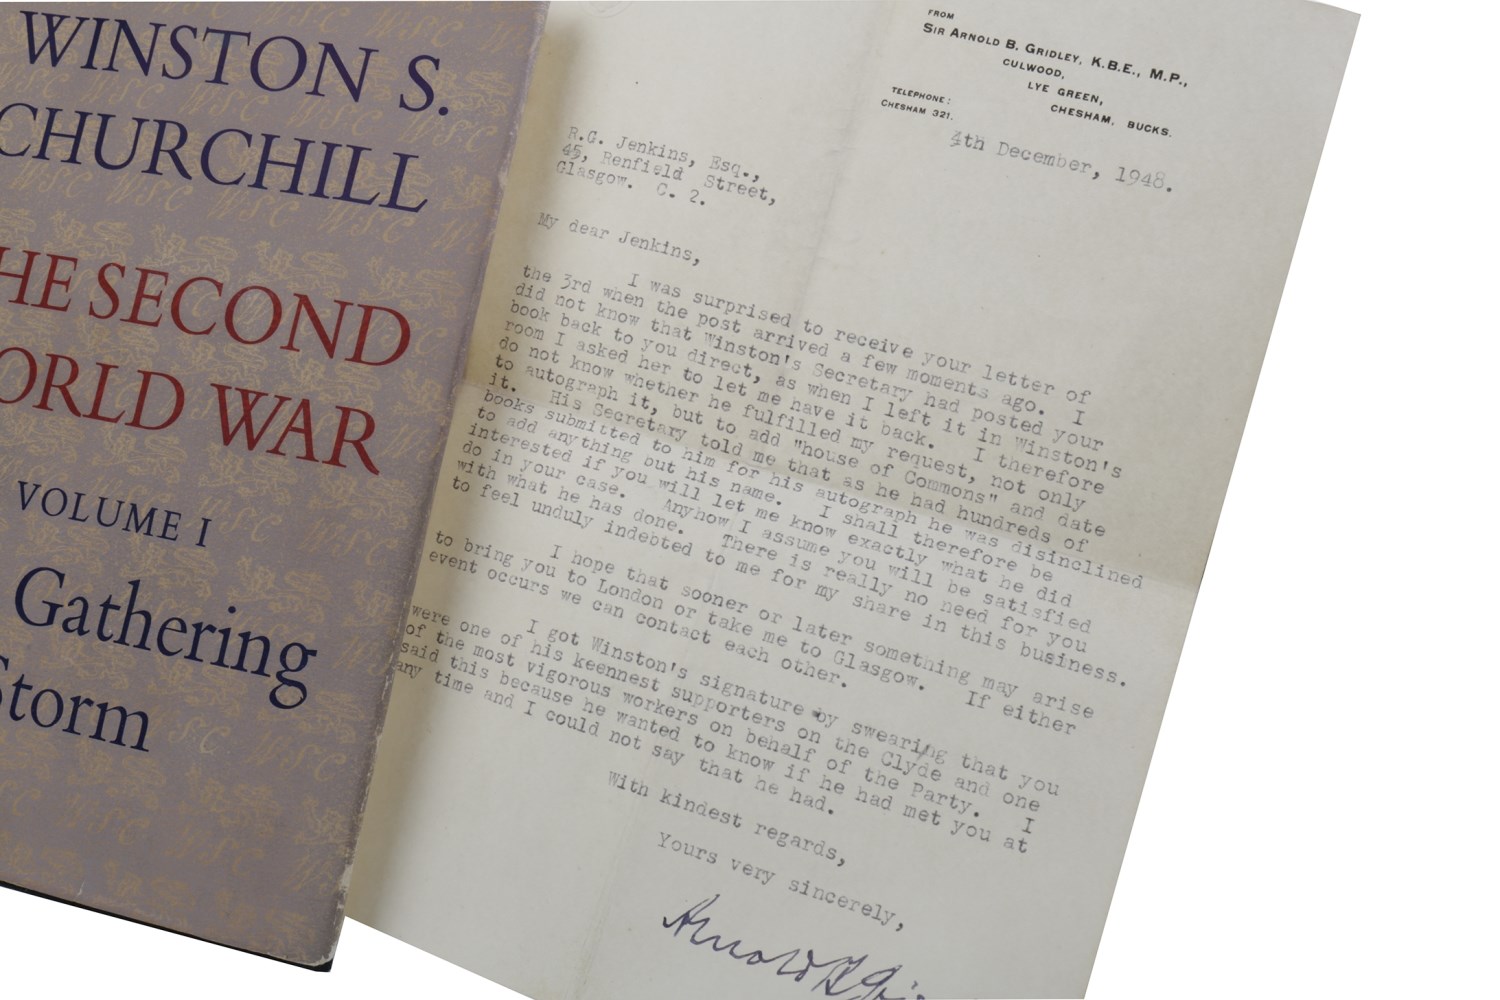 WINSTON S.
CHURCHILL
HE SECOND
ORLD WAR
VOLUME I
Gathering
Storm
FROM
SIR ARNOLD B. GRIDLEY, K.B.E., M.P.,
CULWOOD,
LYE GREEN,
CHESHAM, BUCKS.
TELEPHONE:
CHESHAM 321.
4th December, 1948.
R.G. Jenkins, Esq.,
45, Renfield Street,
Glasgow. C. 2.
My dear Jenkins,
I was surprised to receive your letter of
the 3rd when the post arrived a few moments ago. I
did not know that Winston's Secretary had posted your
book back to you direct, as when I left it in Winston's
room I asked her to let me have it back. I therefore
do not know whether he fulfilled my request, not only
to autograph it, but to add "house of Commons" and date
it. His Secretary told me that as he had hundreds of
books submitted to him for his autograph he was disinclined
to add anything but his name. I shall therefore be
interested if you will let me know exactly what he did
do in your case. Anyhow I assume you will be satisfied
with what he has done. There is really no need for you
to feel unduly indebted to me for my share in this business.
I hope that sooner or later something may arise
to bring you to London or take me to Glasgow. If either
event occurs we can contact each other.
I got Winston's signature by swearing that you
were one of his keennest supporters on the Clyde and one
of the most vigorous workers on behalf of the Party. I
said this because he wanted to know if he had met you at
any time and I could not say that he had.
With kindest regards,
Yours very sincerely,
Arnold B Gri